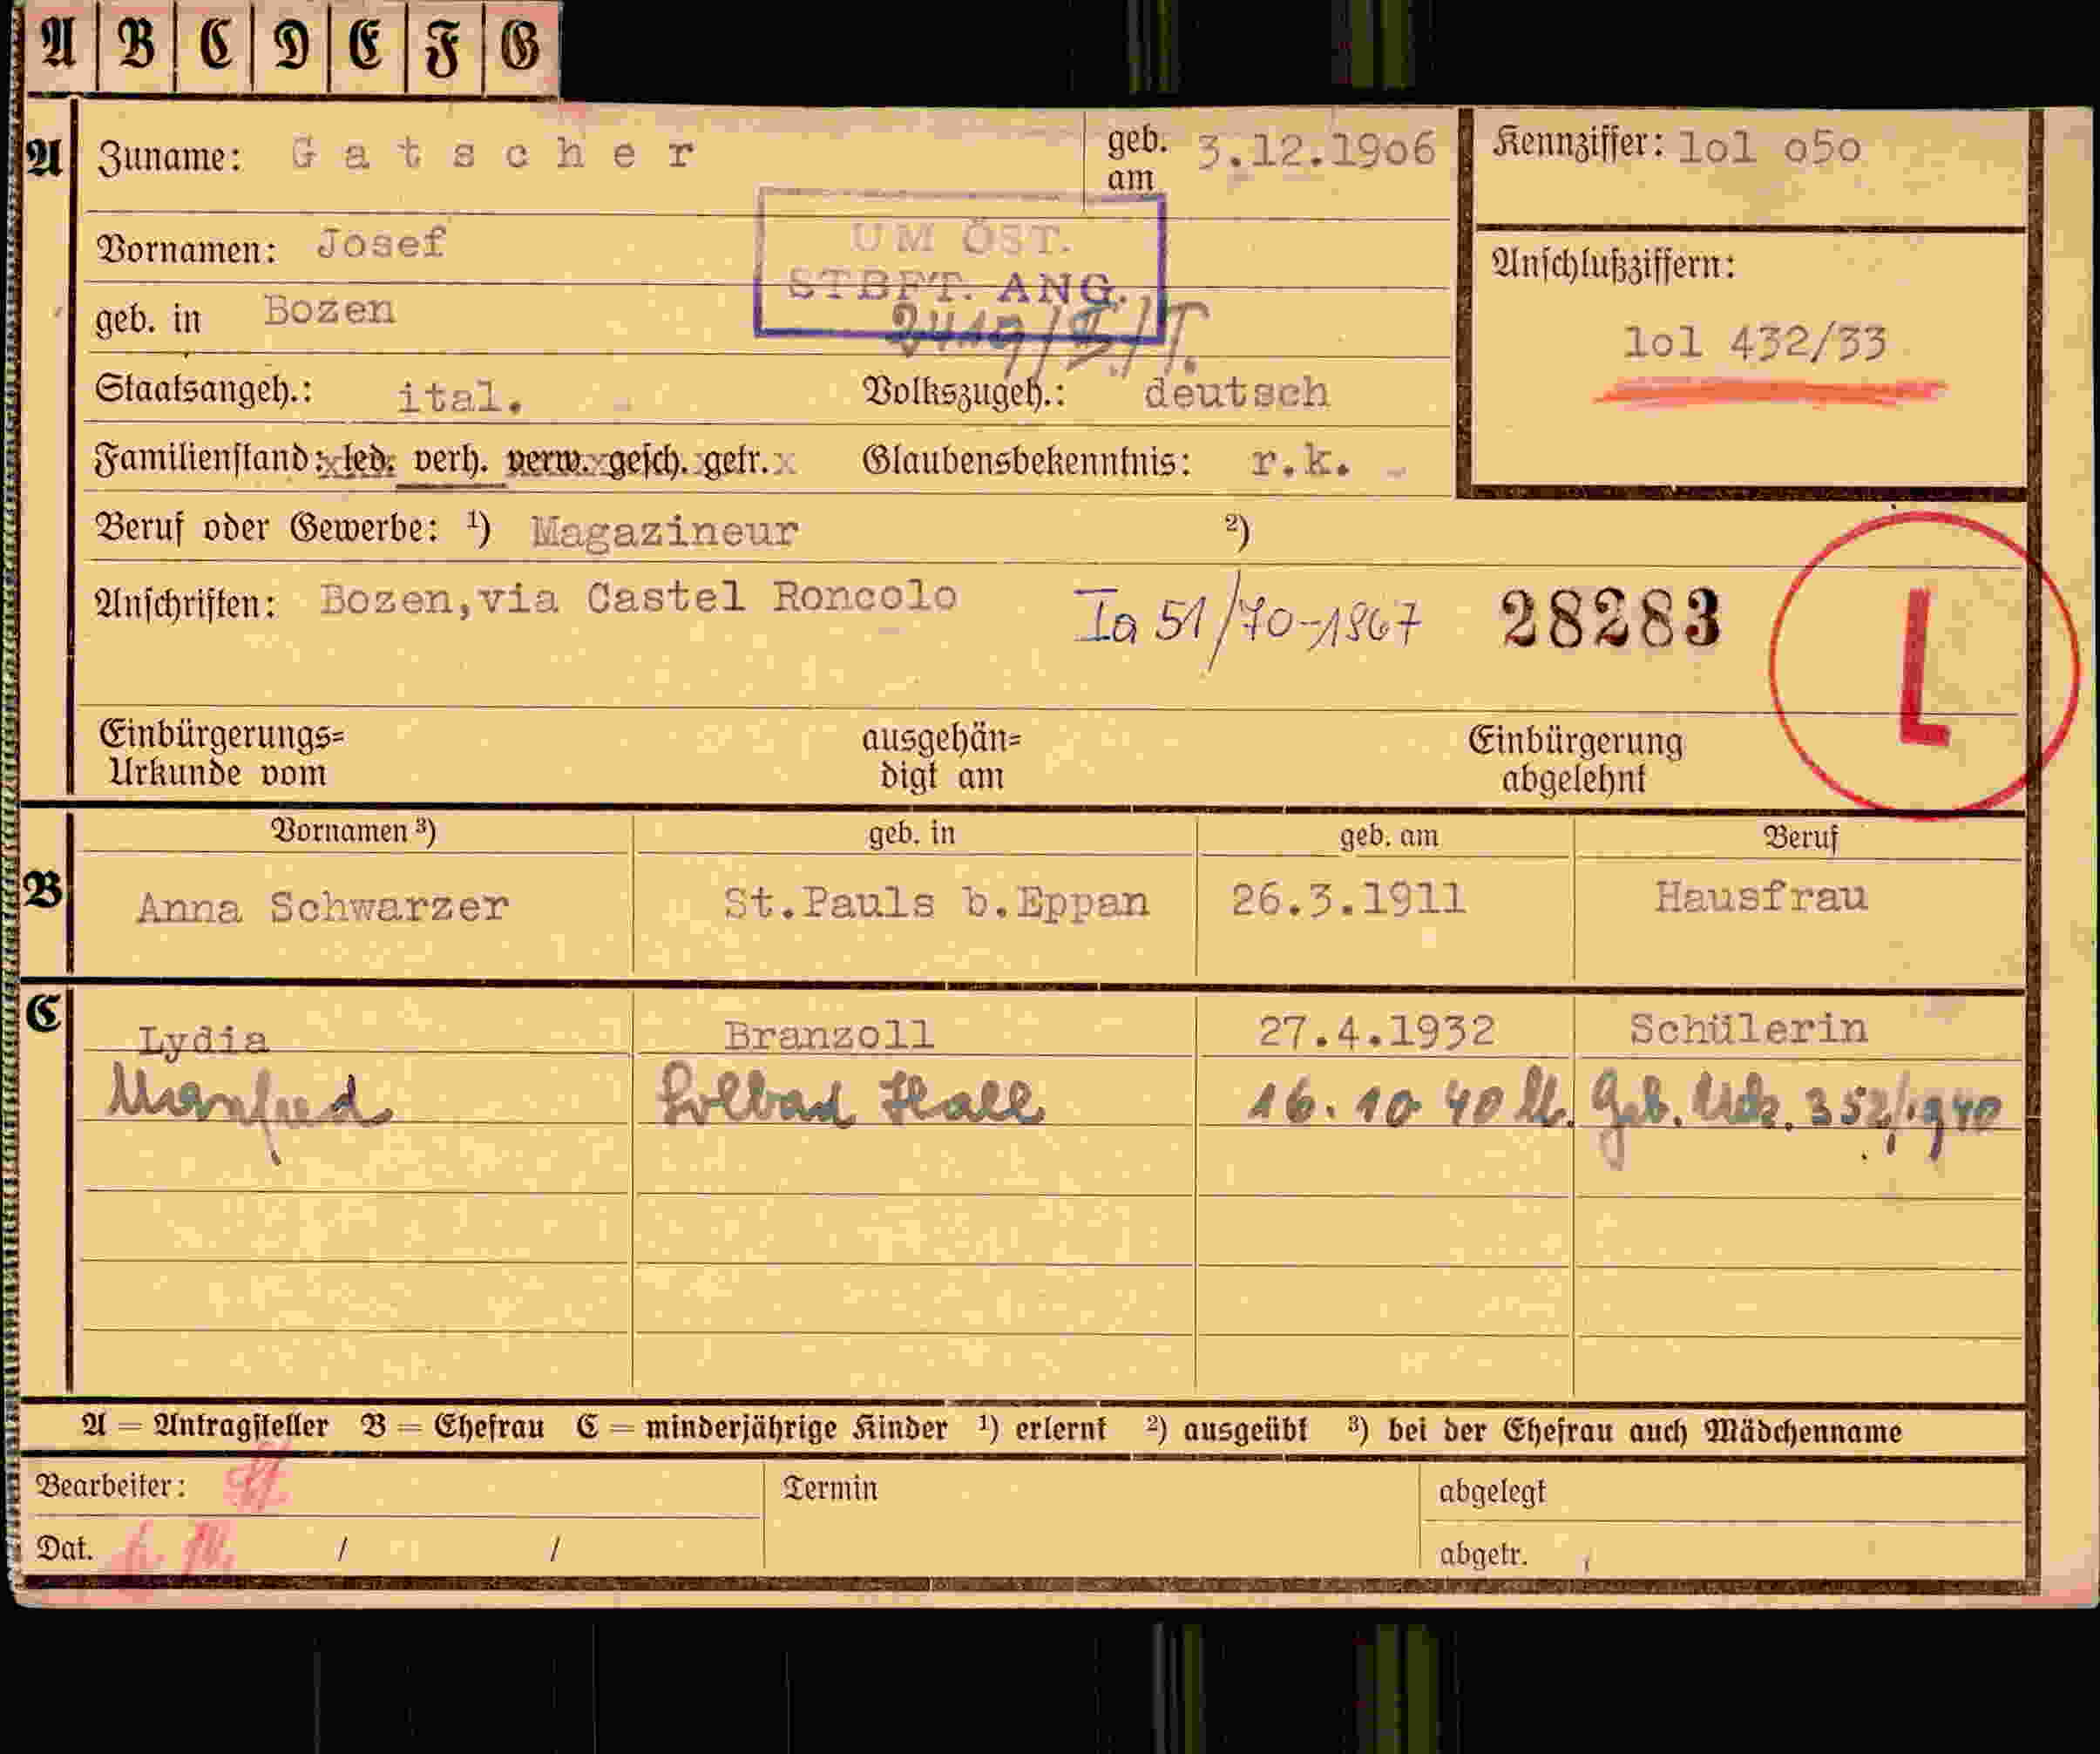 A B C D E F G
A Zuname: Gatscher geb. am 3.12.19o6 Kennziffer: lol o5o
UM ÖST.
Vornamen: Josef
STBFT. ANG.
Anschlußziffern:
geb. in Bozen
lol 432/33
Staatsangeh.: ital. Volkszugeh.: deutsch
Familienstand: led. verh. verw. gesch. getr. Glaubensbekenntnis: r.k.
Beruf oder Gewerbe: ¹) Magazineur ²)
Anschriften: Bozen,via Castel Roncolo Ia 51/70-1967 28283 L
Einbürgerungs= ausgehän= Einbürgerung
Urkunde vom digt am abgelehnt
Vornamen ³) geb. in geb. am Beruf
B Anna Schwarzer St.Pauls b.Eppan 26.3.1911 Hausfrau
C Lydia Branzoll 27.4.1932 Schülerin
Manfred Solbad Hall 16. 10 40 lt. Geb. Urk. 352/1940
A = Antragsteller B = Ehefrau C = minderjährige Kinder ¹) erlernt ²) ausgeübt ³) bei der Ehefrau auch Mädchenname
Bearbeiter: Termin abgelegt
Dat. / / abgetr.